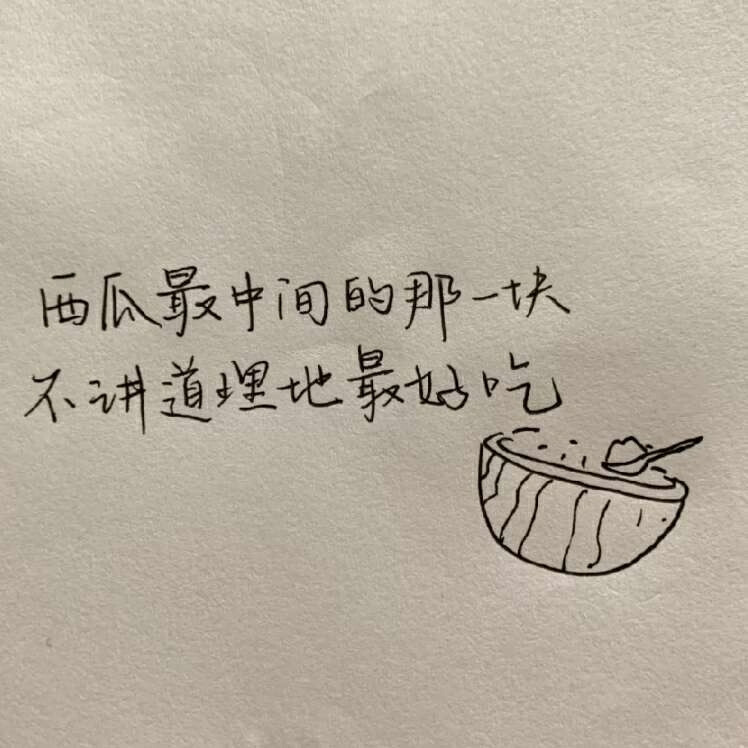 西瓜最中间的那一块
不讲道理地最好吃